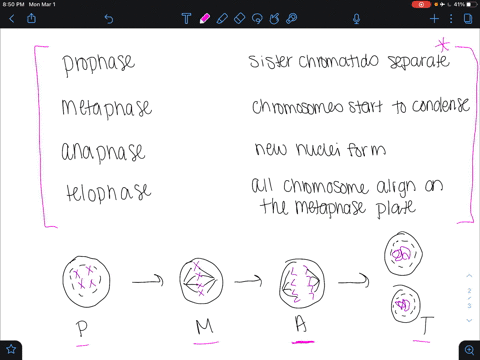 8:50 PM Mon Mar 1
41%
prophase
sister chromatids separate
metaphase
chromosomes start to condense
anaphase
new nuclei form
telophase
all chromosome align on
the metaphase plate
P
M
A
T